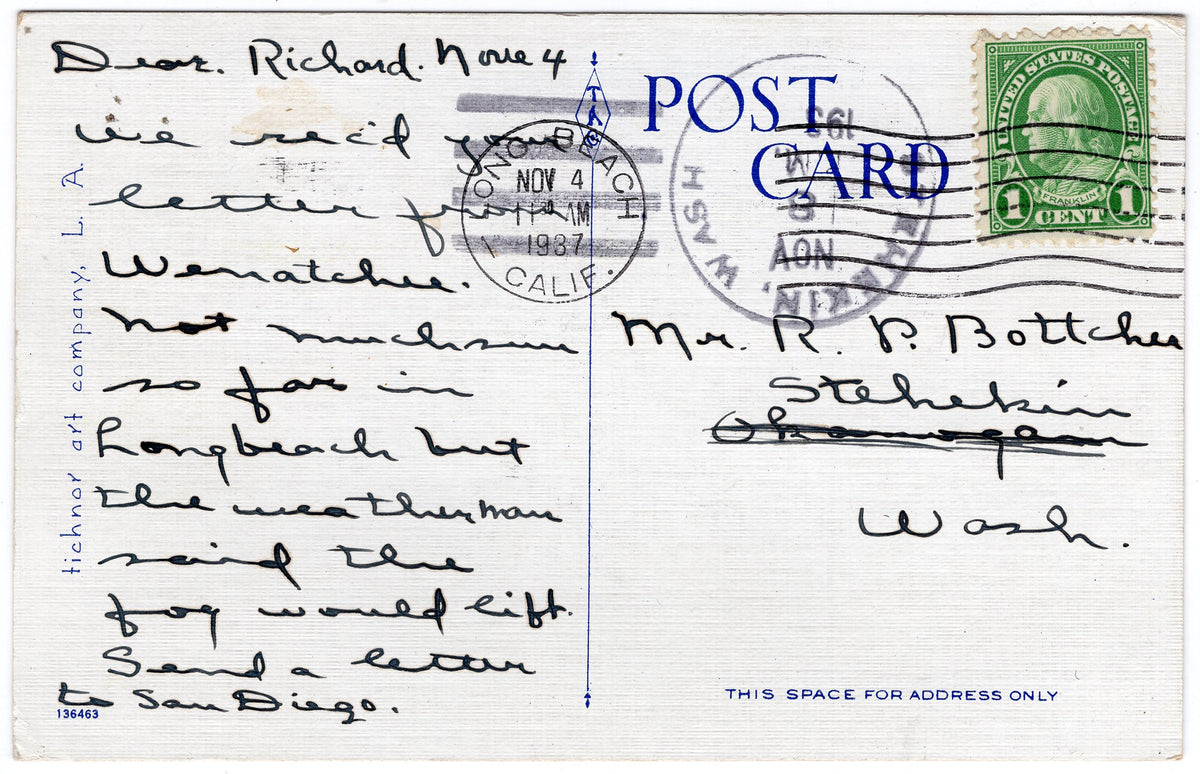 Dear. Richard. Nove 4
we rec'd your
letter from
Wenatchee.
not much sun
so far in
Longbeach but
the weatherman
said the
fog would lift.
Send a letter
to San Diego.
136463
tichnor art company, L. A.
LONG BEACH
NOV 4
11 AM
1937
CALIF.
POST
CARD
NOV
8
193
STEHEKIN, WASH
UNITED STATES POSTAGE
FRANKLIN
1 CENT 1
Mr. R. P. Bottcher
Stehekin
Okanogan
Wash.
THIS SPACE FOR ADDRESS ONLY